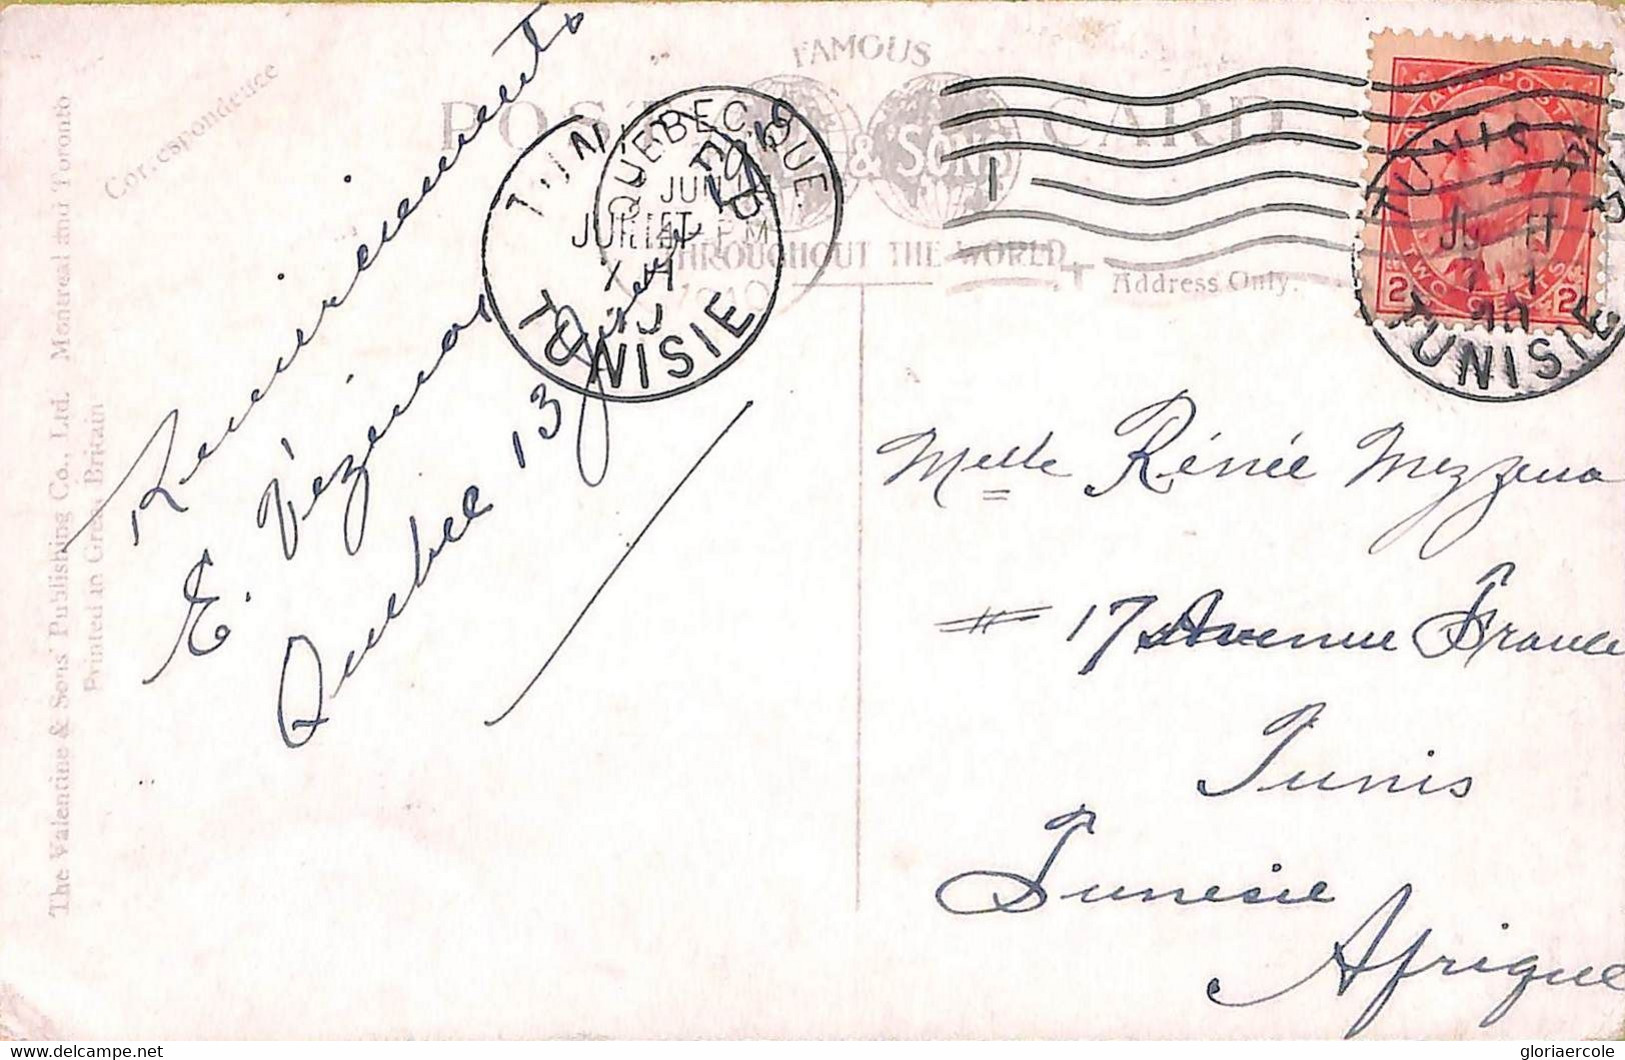 FAMOUS
POST CARD.
& SONS
THROUGHOUT THE WORLD.
Correspondence
Address Only.
The Valentine & Sons' Publishing Co., Ltd. Montreal and Toronto
Printed in Great Britain
QUEBEC, QUE.
JUN
PM
1910
TUNIS
JUILLET
TUNISIE
1
POSTAGE
2 TWO CENTS 2
TUNIS
TUNISIE
Remerciements
E. Vézina
Quebec 13 Juin 1910
Melle Rénée Mezzena
# 17 Avenue France
Tunis
Tunisie
Afrique
delcampe.net
gloriaercole